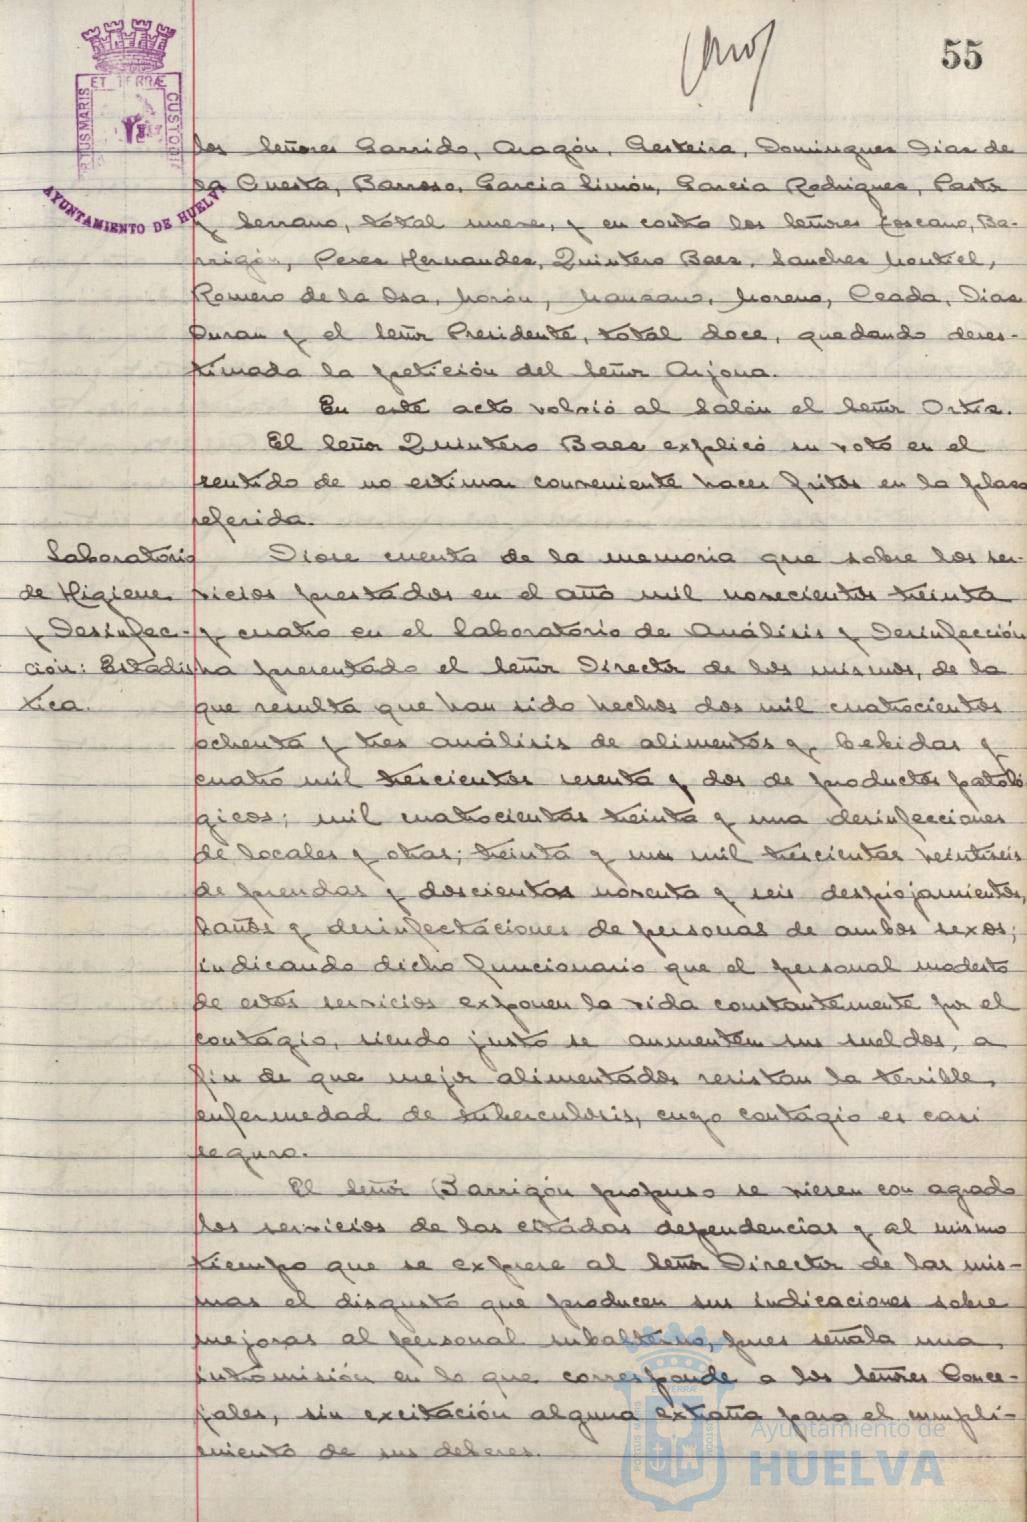 55
ET TERRÆ
PORTUS MARIS
CUSTODIA
AYUNTAMIENTO DE HUELVA
los señores Garrido, Aragón, Gesteira, Domínguez Díaz de
la Cuesta, Barroso, García Simón, García Rodríguez, Pastor
y Serrano, total nueve, y en contra los señores Toscano, Ba-
rrigón, Perez Hernandez, Quintero Baez, Sanchez Montiel,
Romero de la Osa, Morón, Manzano, Moreno, Ceada, Díaz
Duran y el señor Presidente, total doce, quedando deses-
timada la petición del señor Arjona.
En este acto volvió al Salón el señor Ortiz.
El señor Quintero Baez explicó su voto en el
sentido de no estimar conveniente hacer fritos en la plaza
referida.
Laboratorio
de Higiene
y Desinfec-
ción: Estadís
tica.
Diose cuenta de la memoria que sobre los ser-
vicios prestados en el año mil novecientos treinta
y cuatro en el Laboratorio de Análisis y Desinfección
ha presentado el señor Director de los mismos, de la
que resulta que han sido hechos dos mil cuatrocientos
ochenta y tres análisis de alimentos y bebidas y
cuatro mil trescientos sesenta y dos de productos patoló
gicos; mil cuatrocientas treinta y una desinfecciones
de locales y otras; treinta y un mil trescientas veintiseis
de prendas y doscientas noventa y seis despiojamientos,
baños y desinfectaciones de personas de ambos sexos;
indicando dicho funcionario que el personal modesto
de estos servicios exponen la vida constantemente por el
contagio, siendo justo se aumenten sus sueldos, a
fin de que mejor alimentados resistan la terrible
enfermedad de tuberculosis, cuyo contagio es casi
seguro.
El señor Barrigón propuso se viesen con agrado
los servicios de las citadas dependencias y al mismo
tiempo que se exprese al señor Director de las mis-
mas el disgusto que producen sus indicaciones sobre
mejoras al personal subalterno, pues señala una
intromisión en lo que corresponde a los señores Conce-
jales, sin excitación alguna extraña para el cumpli-
miento de sus deberes.
Ayuntamiento de
HUELVA